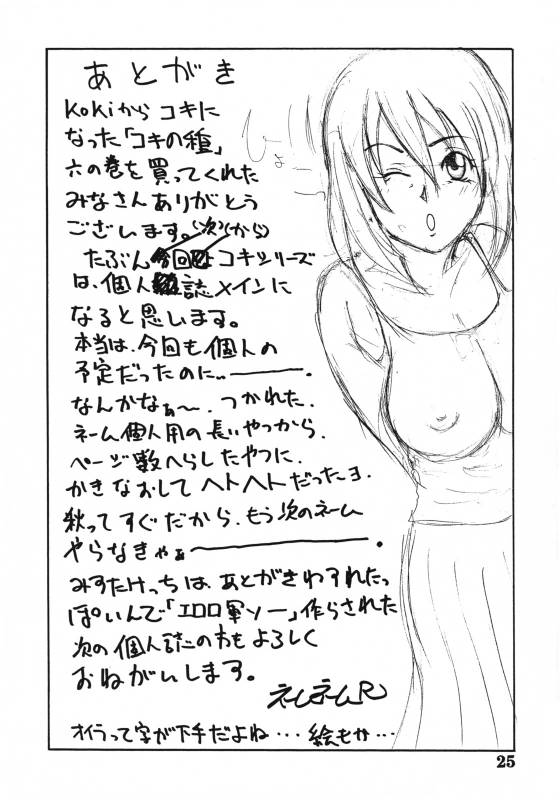 あとがき
Kokiからコキに
なった「コキの種」
六の巻を買ってくれた
みなさんありがとう
ございます。次から
たぶん コキシリーズ
は、個人誌メインに
なると思います。
本当は、今回も個人の
予定だったのに…───。
なんかなぁ〜。つかれた。
ネーム個人用の長いやつから、
ページ数へらしたやつに、
かきなおしてヘトヘトだったーヨ.
秋ってすぐだから、もう次のネーム
やらなきゃぁ─────。
みすたけっちは、あとがきわすれたっ
ぽいんで「エロロ軍ソー」作らされた
次の個人誌のもよろしく
おねがいします。
ネムネムR
オイラって字が下手だよね…絵もか…
ひょー
25